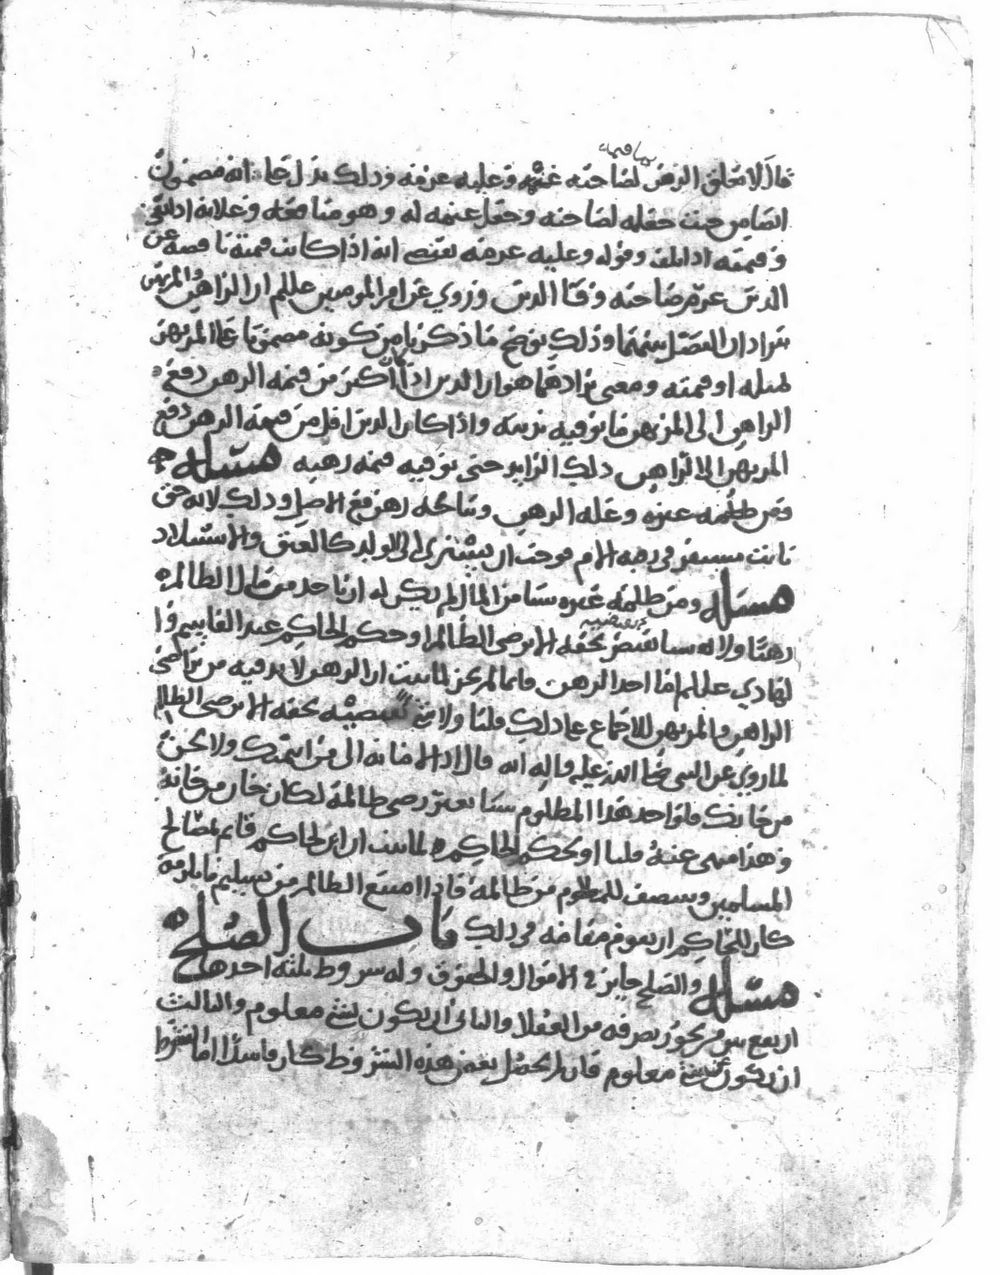 قال لا يغلق الرهن لصاحبه غنمه وعليه غرمه وذلك يدل على انه مضمون
بما فيه
ايضا من حيث جعله لصاحبه وجعل غنمه له وهو منافعه وغلاته اذا بقي
وقيمته اذا تلف وقوله وعليه غرمه يقتضي انه اذا كانت قيمته ناقصة عن
الدين غرم صاحبه وفا الدين وروي عن امير المومنين عللم ان الراهن والمرتهن
يترادان الفضل بينهما وذلك يوضح ما ذكرنا من كونه مضمونا على المرتهن
بمثله او قيمته ومعنى ترادهما هو ان الدين اذا كان اكثر من قيمة الرهن دفع
الراهن الى المرتهن ما يوفيه دينه واذا كان الدين اقل من قيمة الرهن دفع
المرتهن الى الراهن ذلك الزايد حتى يوفيه قيمة رهنه مسئله
وغلة الرهن ونتائجه رهن مع الاصل وذلك لانه حق
ثابت مستقر في رقبة الام فوجب ان يسري الى الولد كالعتق والاستيلاد
مسئله ومن ظلمه غيره شيا من المال لم يكن له ان ياخذ من مال الظالم
رهنا ولا له شيا بحقه الا برضى الظالم او حكم الحاكم عند القاسم و
الهادي عللم اما اخذ الرهن فانما لم يجز لما ثبت ان الرهن لا بد فيه من تراضي
الراهن والمرتهن للاجماع على ذلك قلنا ولا شي بحقه الا برضى الظالم
لما روي عن النبي صلى الله عليه واله انه قال اد الامانه الى من ائتمنك ولا تخن
من خانك فلو اخذ هذا المظلوم شيا بغير رضى ظالمه لكان خان من خانه
وهذا منهي عنه قلنا او بحكم الحاكم لما ثبت ان الحاكم قائم لمصالح
المسلمين وينصف للمظلوم من ظالمه فاذا امتنع الظالم من تسليم ما يلزمه
كان للحاكم ان يقوم مقامه في ذلك باب الصلح
مسئله والصلح جايز في الاموال والحقوق وله شروط ثلثه احدها
ان يقع ممن يجوز تصرفه من العقلا والثاني ان يكون بشي معلوم والثالث
ان يكون عن شي معلوم فان لم يحصل بعض هذه الشروط كان فاسدا اما الشرط